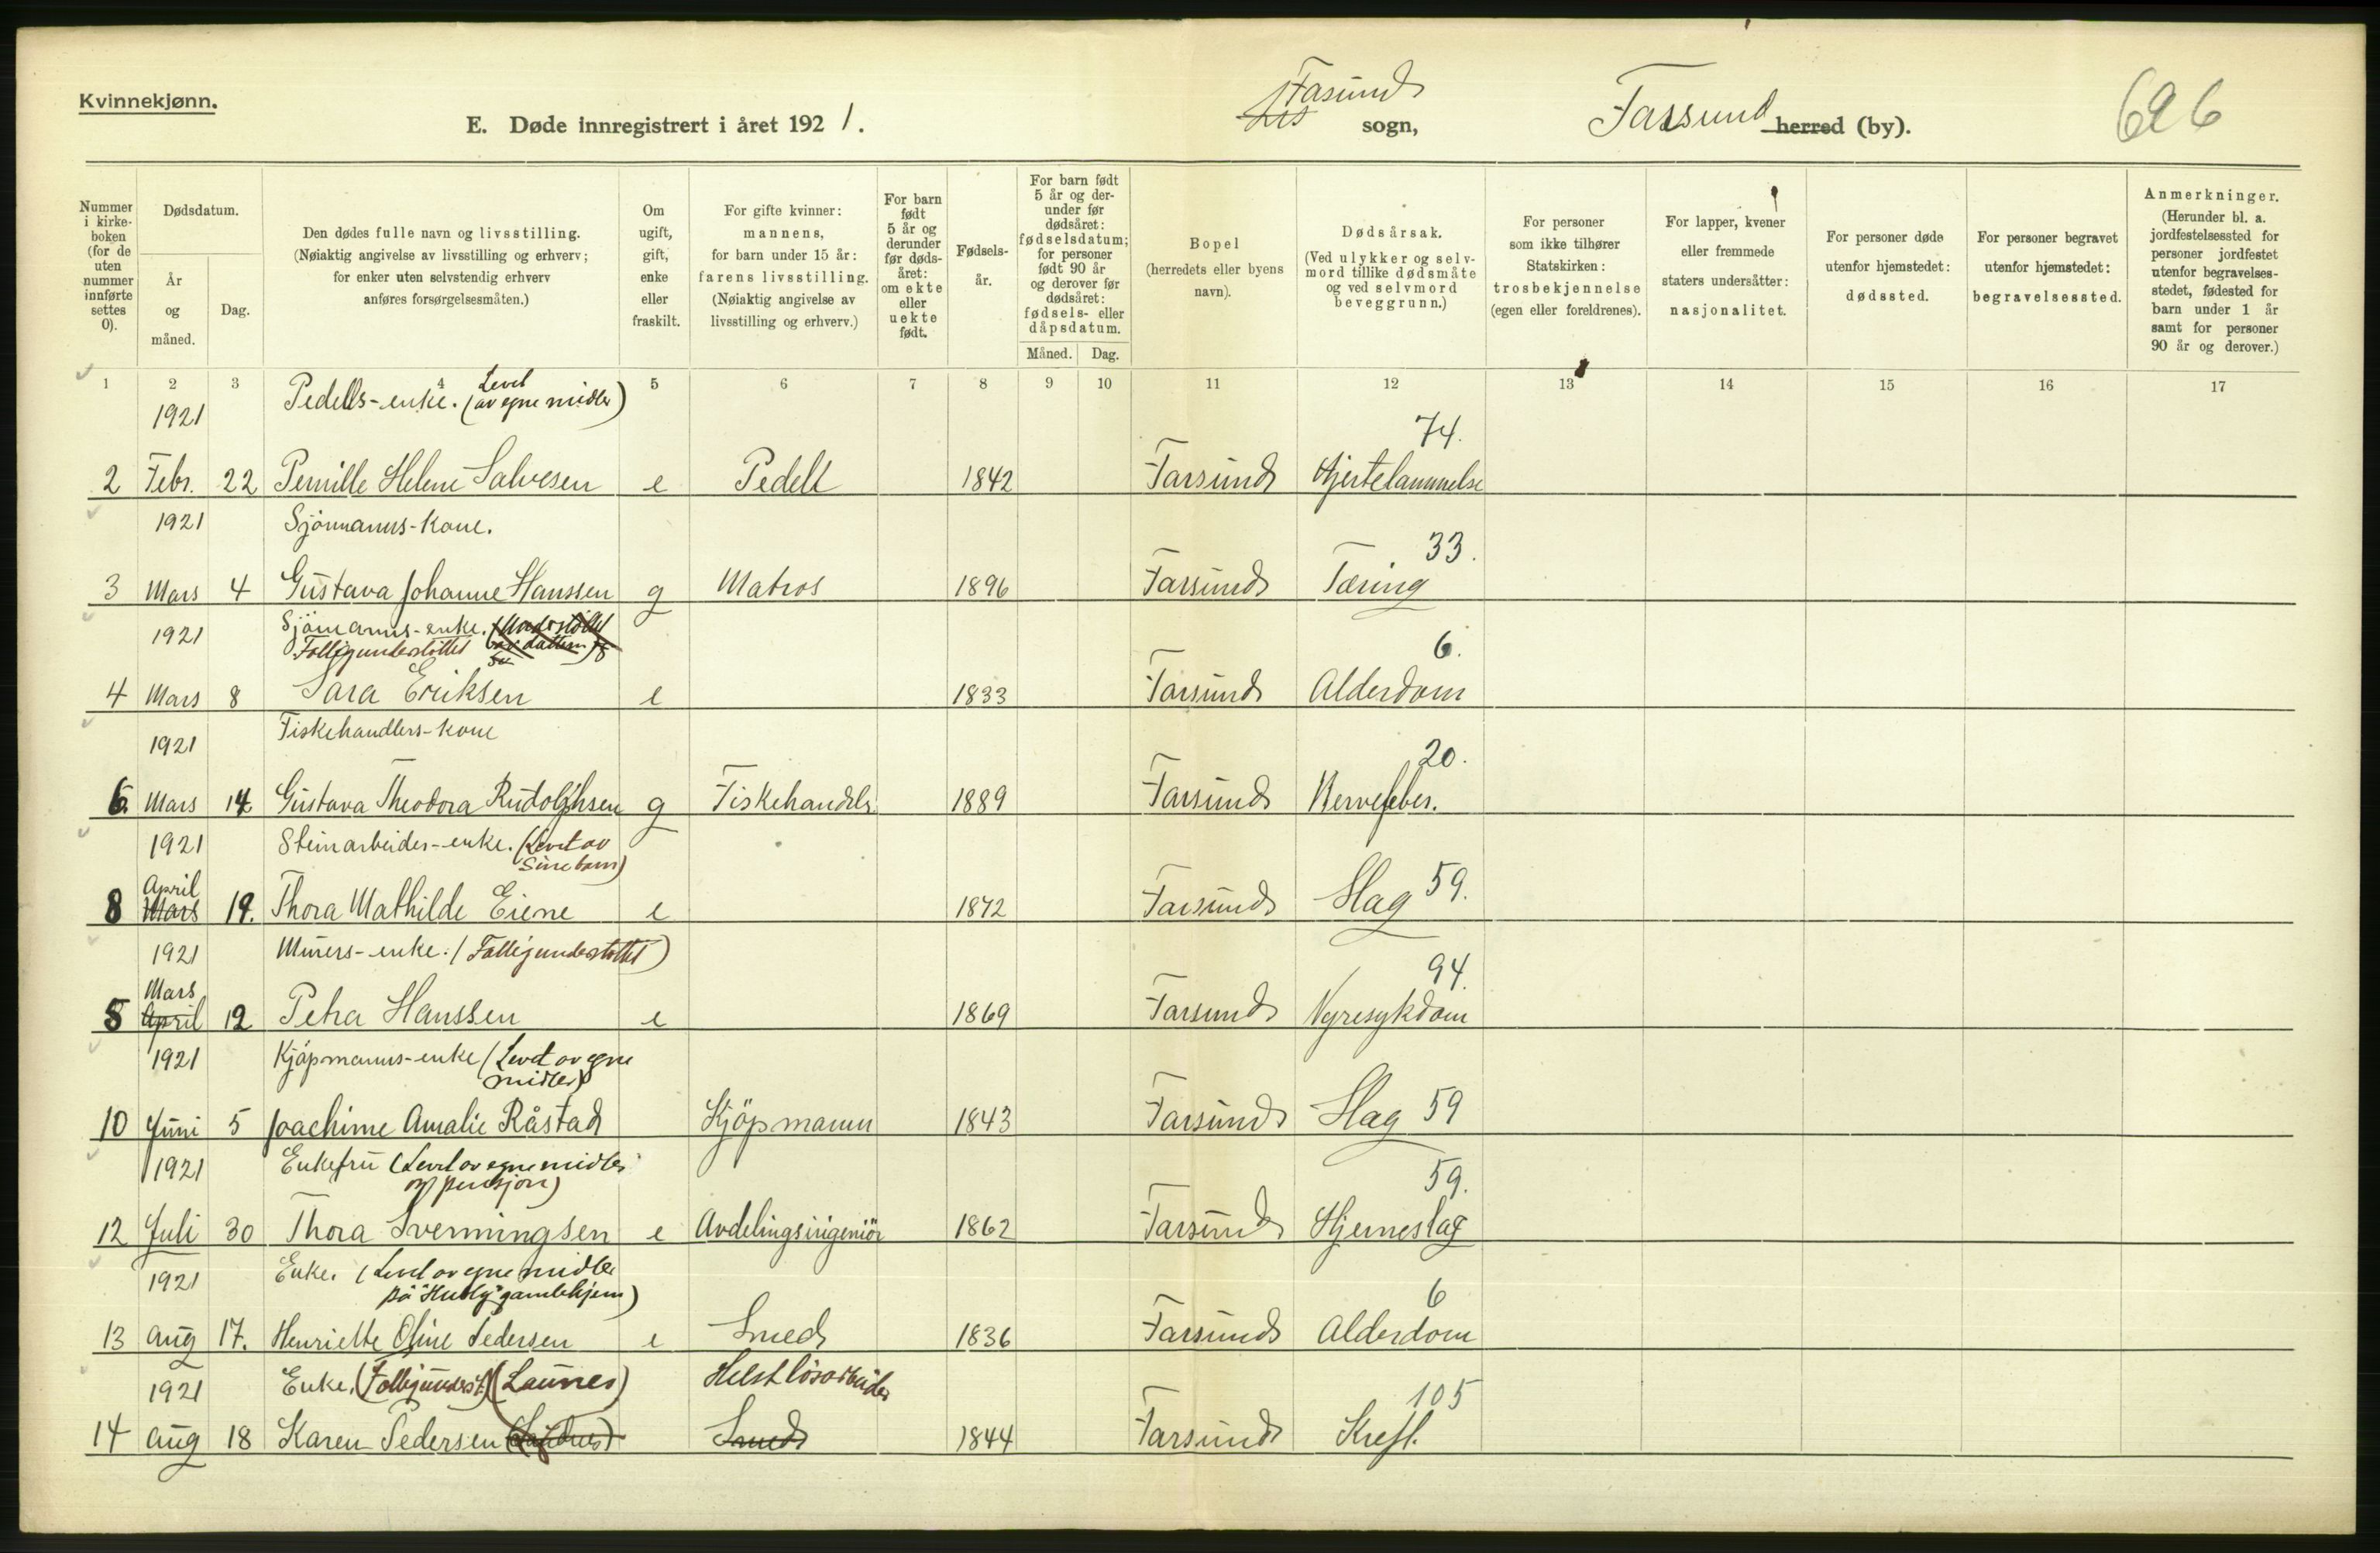 Kvinnekjønn.
E. Døde innregistrert i året 1921.
Fasund
Lis sogn,
Farsund herred (by).
626
Nummer i kirkeboken (for de uten nummer innførte settes 0).
Dødsdatum.
År og måned.
Dag.
Den dødes fulle navn og livsstilling.
(Nøiaktig angivelse av livsstilling og erhverv;
for enker uten selvstendig erhverv
anføres forsørgelsesmåten.)
Om ugift, gift, enke eller fraskilt.
For gifte kvinner:
mannens,
for barn under 15 år:
farens livsstilling.
(Nøiaktig angivelse av
livsstilling og erhverv.)
For barn født 5 år og derunder før dødsåret: om ekte eller uekte født.
Fødselsår.
For barn født 5 år og derunder før dødsåret: fødselsdatum; for personer født 90 år og derover før dødsåret: fødsels- eller dåpsdatum.
Måned. Dag.
Bopel
(herredets eller byens
navn).
Dødsårsak.
(Ved ulykker og selvmord tillike dødsmåte og ved selvmord beveggrunn.)
For personer
som ikke tilhører
Statskirken:
trosbekjennelse
(egen eller foreldrenes).
For lapper, kvener
eller fremmede
staters undersåtter:
nasjonalitet.
For personer døde
utenfor hjemstedet:
dødssted.
For personer begravet
utenfor hjemstedet:
begravelsessted.
Anmerkninger.
(Herunder bl. a.
jordfestelsessted for
personer jordfestet
utenfor begravelses-
stedet, fødested for
barn under 1 år
samt for personer
90 år og derover.)
1 2 3 4 5 6 7 8 9 10 11 12 13 14 15 16 17
1921 Pedells-enke. (Levet av egne midler) 74.
2 Febr. 22 Pernille Helene Salvesen e Pedell 1842 Farsund Hjertelammelse
1921 Sjömanns-kone. 33.
3 Mars 4 Gustava Johanne Hanssen g Matros 1896 Farsund Tæring
1921 Sjömanns-enke. (Understöttet
Fattigunderstöttet av datteren) 6.
4 Mars 8 Sara Eriksen e 1833 Farsund Alderdom
1921 Fiskehandlers-kone 20.
6 Mars 14 Gustava Theodora Rudolphsen g Fiskehandler 1889 Farsund Nervefeber.
1921 Steinarbeider-enke. (Levet av
sine barn)
8 April Mars 19. Thora Mathilde Eiene e 1872 Farsund Slag 59.
1921 Murers-enke. (Fattigunderstöttet) 94.
5 Mars April 12 Petra Hanssen e 1869 Farsund Nyresykdom
1921 Kjöpmanns-enke (Levet av egne
midler)
10 Juni 5 Joachime Amalie Råstad Kjöpmann 1843 Farsund Slag 59
1921 Enkefru (Levet av egne midler
og pensjon) 59.
12 Juli 30 Thora Svenningsen e Avdelingsingeniör 1862 Farsund Hjerneslag
1921 Enke. (Levet av egne midler
på "Husly" gamlehjem) 6
13 Aug 17. Henriette Oline Pedersen e Smed 1836 Farsund Alderdom
1921 Enke. (Fattigunderst.) (Launes) Helst lösarbeider 105
14 Aug 18 Karen Pedersen Smed 1844 Farsund Kreft.